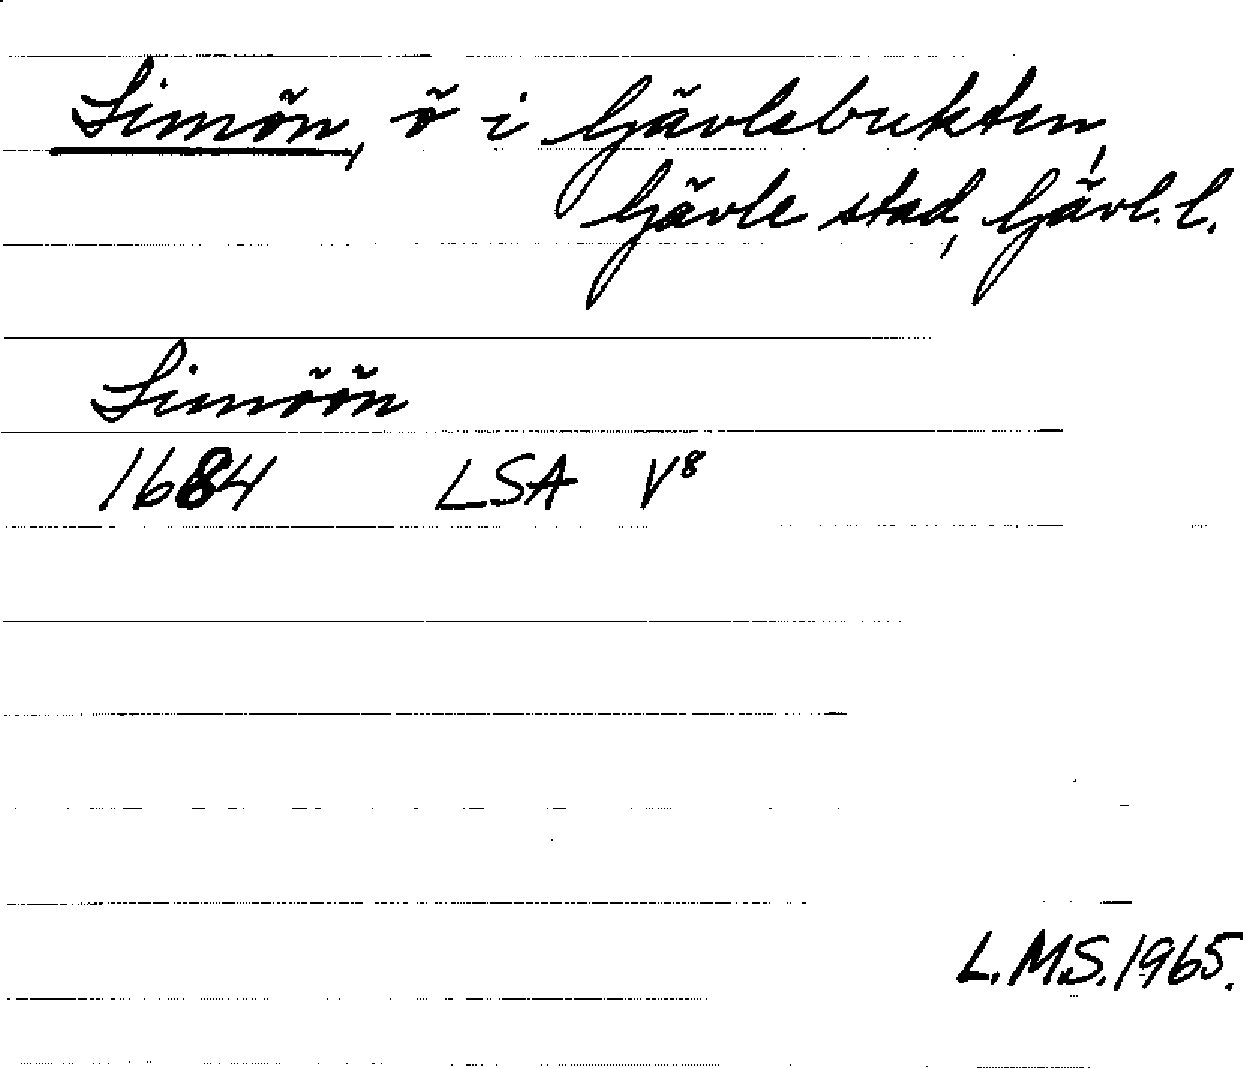 Limön, ö i Gävlebukten,
Gävle stad, Gävl. l.
Limöön
1684 LSA V⁸
L.M.S. 1965.